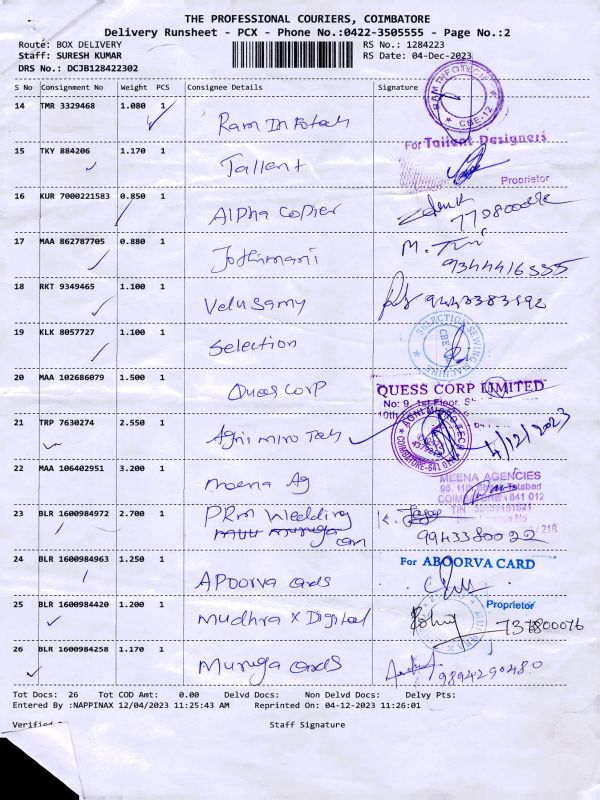 THE PROFESSIONAL COURIERS, COIMBATORE
Delivery Runsheet - PCX - Phone No.:0422-3505555 - Page No.:2
Route: BOX DELIVERY RS No.: 1284223
Staff: SURESH KUMAR RS Date: 04-Dec-2023
DRS No.: DCJB128422302
S No Consignment No Weight PCS Consignee Details Signature
14 TMR 3329468 1.080 1 Ram Infotech
RAM INFOTECH CBE-12
15 TKY 884206 1.170 1 Tallent
For Tallent Designers
Proprietor
16 KUR 7000221583 0.850 1 Alpha Copier
17 MAA 862787705 0.880 1 Jothimani
18 RKT 9349465 1.100 1 Velusamy
19 KLK 8057727 1.100 1 Selection
SELECTION SEWING MACHINE CBE
20 MAA 102686079 1.500 1 Quess Corp
QUESS CORP LIMITED
No: 9, 1st Floor,
10th
21 TRP 7630274 2.550 1 Agni Miro Tech
COIMBATORE-641 012
4/12/2023
22 MAA 106402951 3.200 1 Meena Ag
MEENA AGENCIES
641 012
TIN
23 BLR 1600984972 2.700 1 PRM Wedding
9943380022
24 BLR 1600984963 1.250 1 Apoorva Cards
For ABOORVA CARD
Proprietor
25 BLR 1600984420 1.200 1 Mudhra X Digital
26 BLR 1600984258 1.170 1 Muruga Cards
9894290480
Tot Docs: 26 Tot COD Amt: 0.00 Delvd Docs: Non Delvd Docs: Delvy Pts:
Entered By :NAPPINAX 12/04/2023 11:25:43 AM Reprinted On: 04-12-2023 11:26:01
Staff Signature